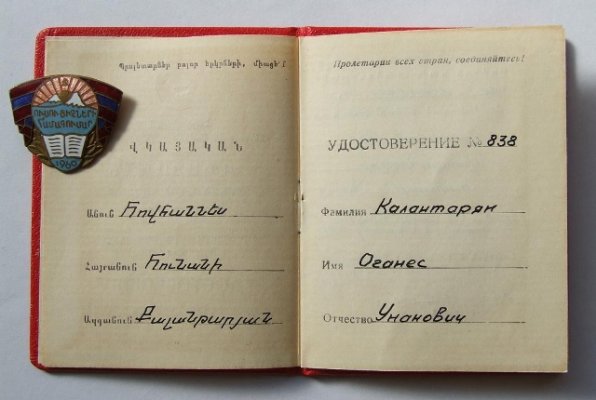 ՈՒՍՈՒՑԻՉՆԵՐԻ
ՀԱՄԱԳՈՒՄԱՐ
1960
Պրոլետարներ բոլոր երկրների, միացե՛ք
ՎԿԱՅԱԿԱՆ
Անուն Հովհաննես
Հայրանուն Հունանի
Ազգանուն Քալանթարյան
Пролетарии всех стран, соединяйтесь!
УДОСТОВЕРЕНИЕ № 838
Фамилия Калантарян
Имя Оганес
Отчество Унанович